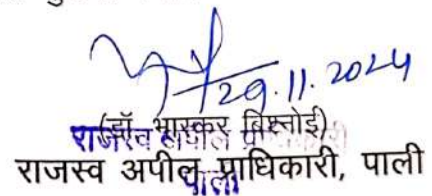 29.11.2024
(डॉ. भास्कर बिश्नोई)
राजस्व अपील प्राधिकारी
राजस्व अपील प्राधिकारी, पाली
पाली